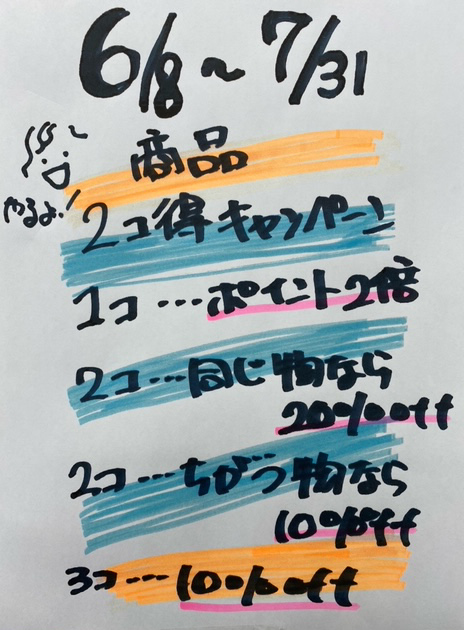 6/8~7/31
商品
やるよ!
2コ得キャンペーン
1コ…ポイント2倍
2コ…同じ物なら
20%off
2コ…ちがう物なら
10%off
3コ…10%off